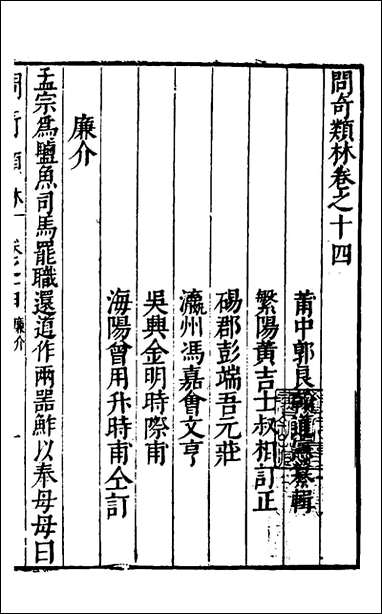 問奇類林卷之十四
莆中郭良翰道憲纂輯
繁陽黃吉士叔相訂正
碭郡彭端吾元莊
瀛州馮嘉會文亨
吳興金明時際甫
海陽曾用升時甫仝訂
廉介
孟宗為鹽魚司馬罷職還道作兩器鮓以奉母母曰
問奇類林 卷之十四 廉介 一